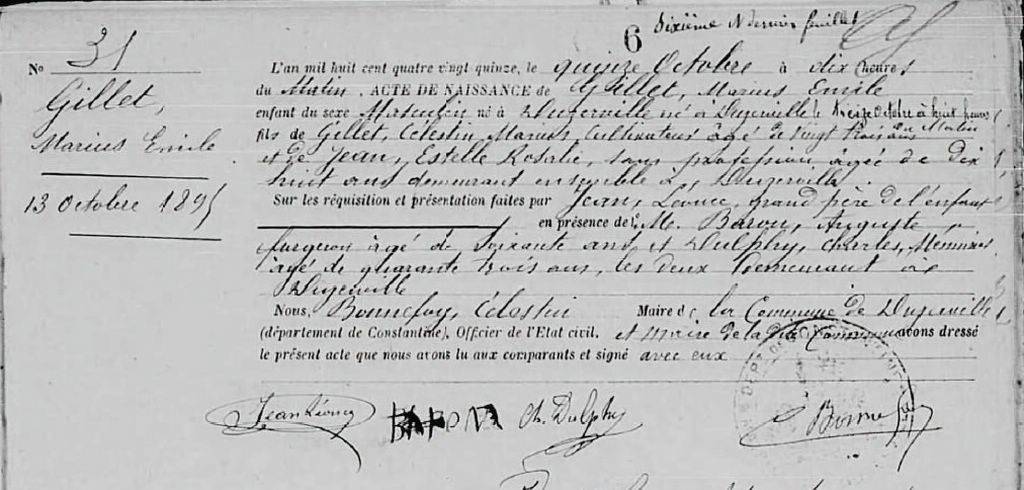 6 Dixième et dernier feuillet
N° 31
L'an mil huit cent quatre vingt quinze, le quinze Octobre à dix heures
du Matin, ACTE DE NAISSANCE de Gillet, Marius Emile
Gillet,
Marius Emile
13 Octobre 1895
enfant du sexe Masculin né à Duzerville le treize Octobre à huit heures du Matin
fils de Gillet, Célestin, Marius, Cultivateur âgé de vingt trois ans
et de Jean, Estelle Rosalie, sans profession âgée de dix
huit ans demeurant ensemble à Duzerville.
Sur les réquisition et présentation faites par Jean, Léonce, grand père de l'enfant
en présence de M. Baron, Auguste,
forgeron âgé de soixante ans, et Dulphy, Charles, Menuisier
âgé de quarante trois ans, les deux demeurant à
Duzerville
Nous, Bonnefoy, Célestin Maire de la Commune de Duzerville
(département de Constantine), Officier de l'Etat civil, et Maire de la dite Commune avons dressé
le présent acte que nous avons lu aux comparants et signé avec eux
Jean Léonce BARON Ch. Dulphy Bonnefoy